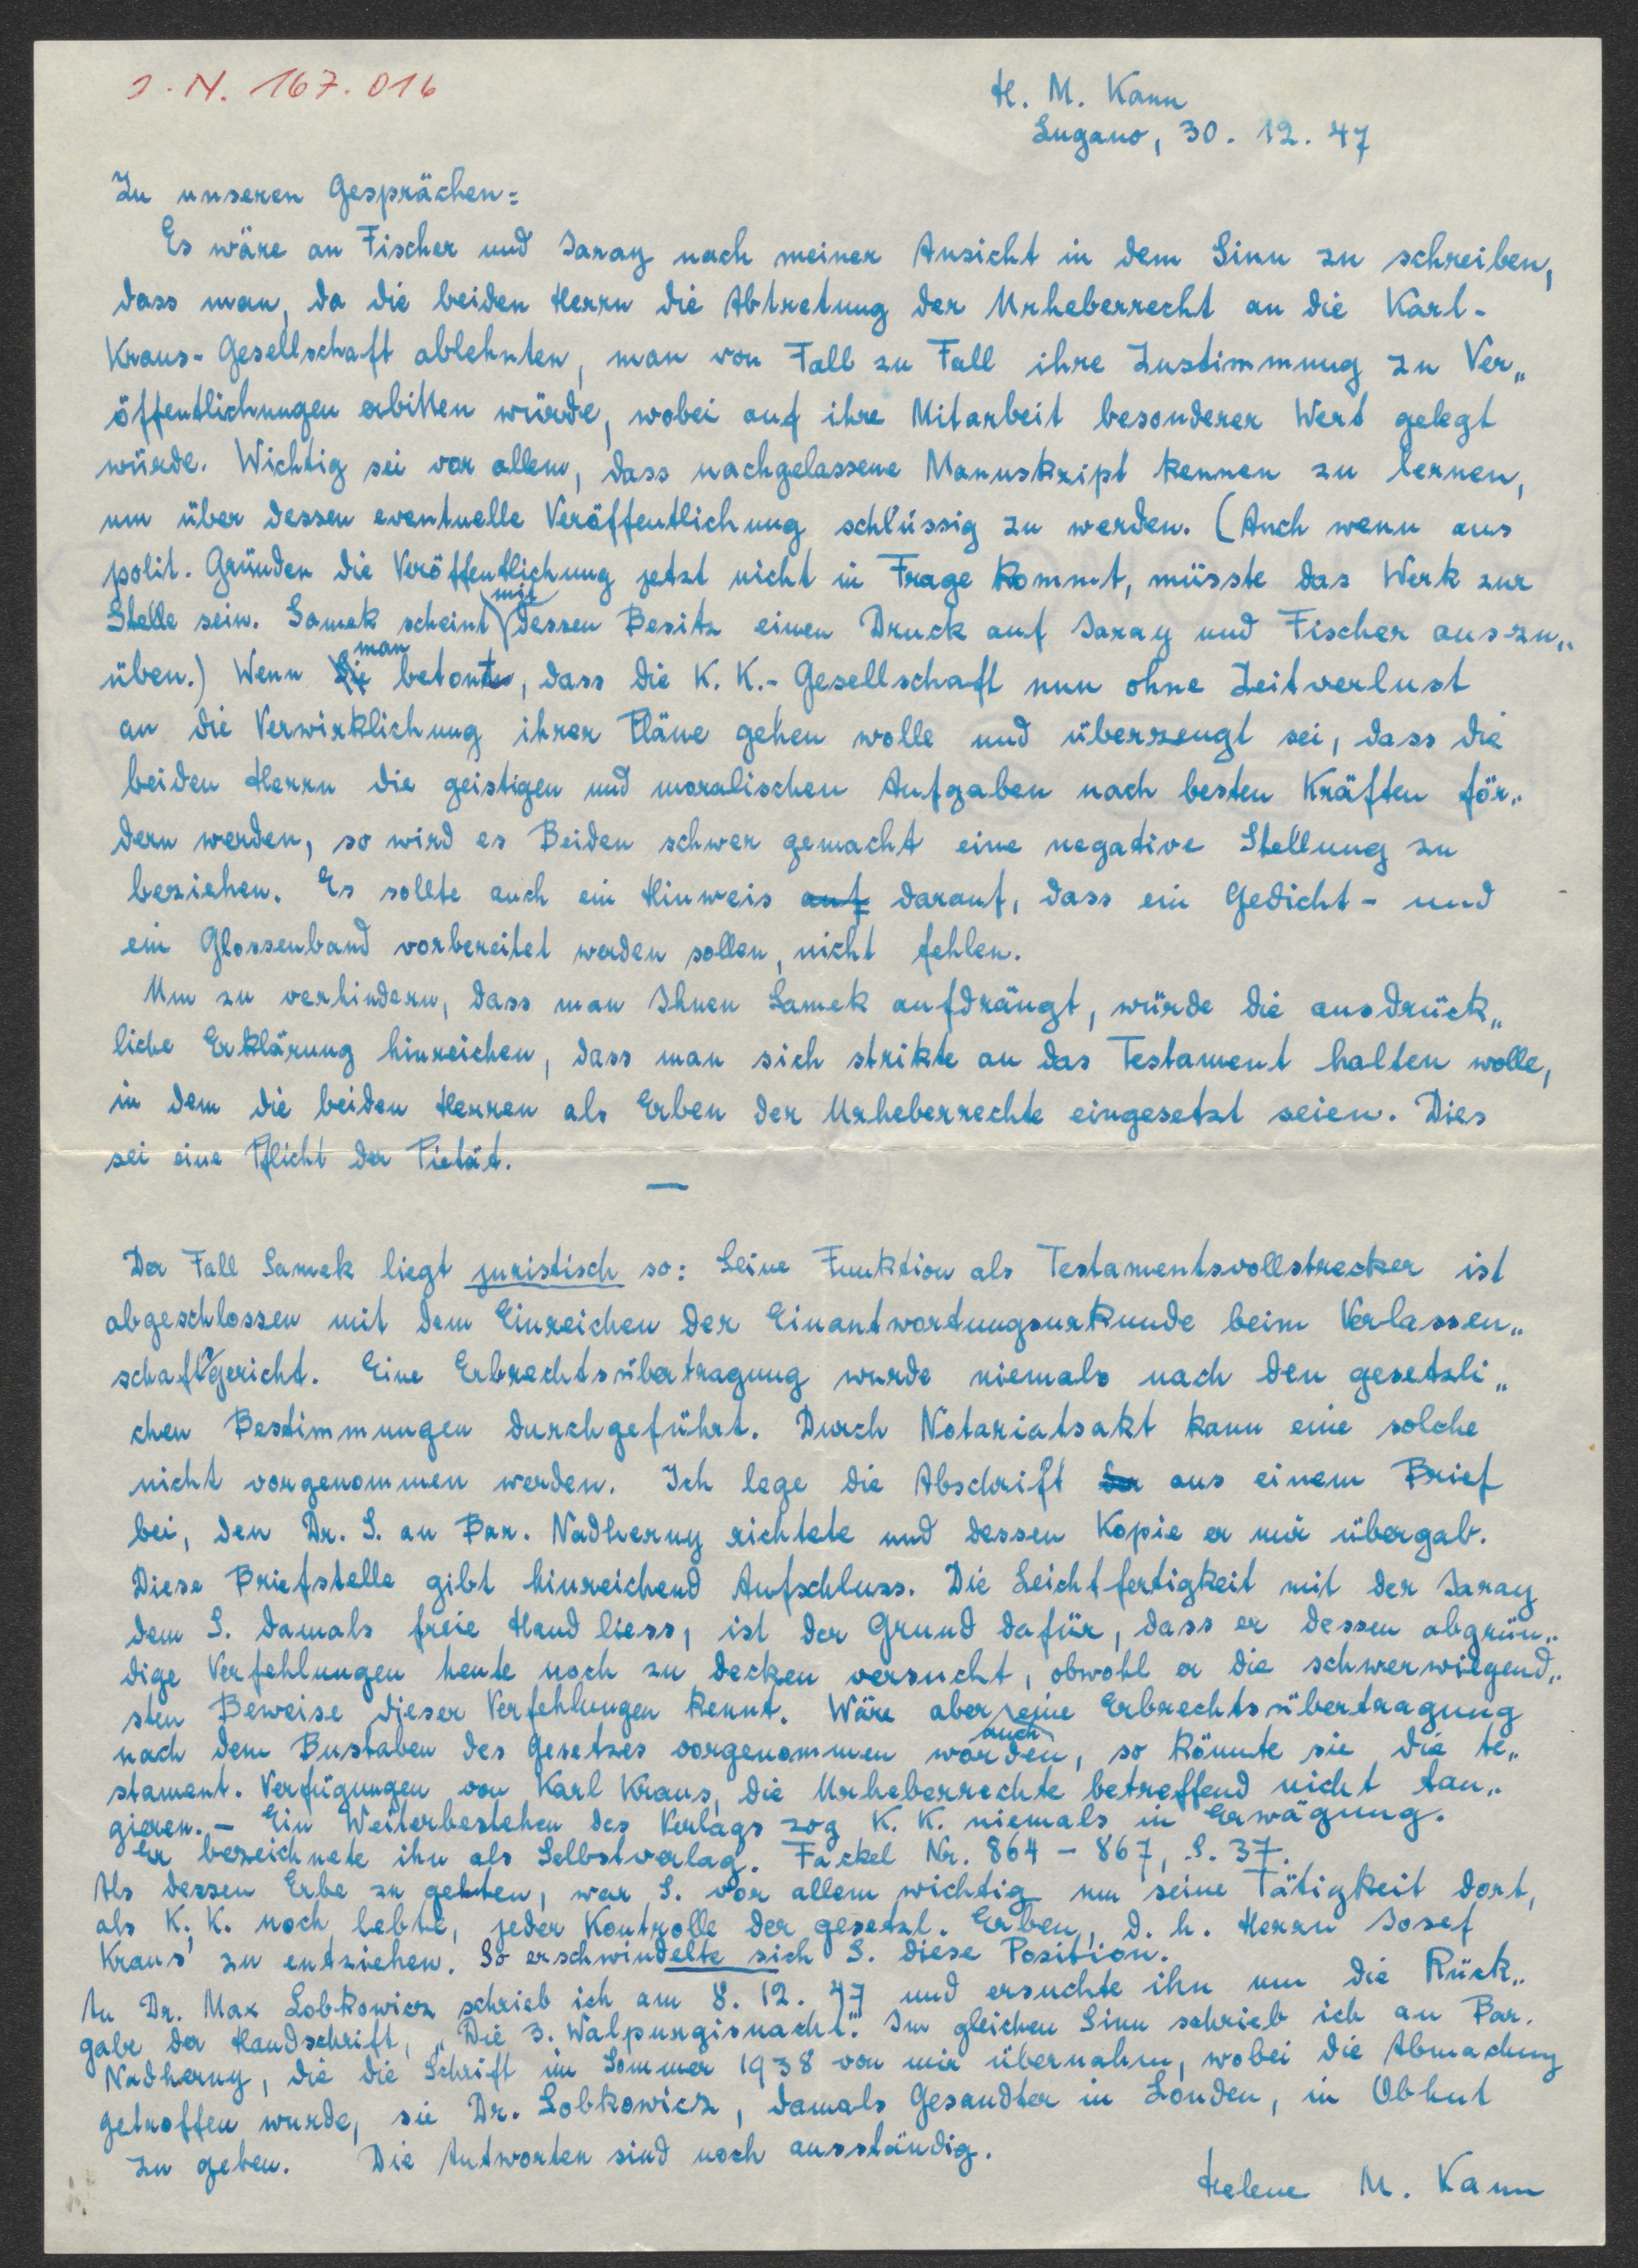 J. N. 167.016
H. M. Kann
Lugano, 30. 12. 47
Zu unseren Gesprächen:
Es wäre an Fischer und Jaray nach meiner Ansicht in dem Sinn zu schreiben,
dass man, da die beiden Herrn die Abtretung der Urheberrecht an die Karl-
Kraus-Gesellschaft ablehnten, man von Fall zu Fall ihre Zustimmung zu Ver„
öffentlichungen erbitten würde, wobei auf ihre Mitarbeit besonderer Wert gelegt
würde. Wichtig sei vor allem, dass nachgelassene Manuskript kennen zu lernen,
um über dessen eventuelle Veröffentlichung schlüssig zu werden. (Auch wenn aus
polit. Gründen die Veröffentlichung jetzt nicht in Frage kommt, müsste das Werk zur
Stelle sein. Samek scheint mit dessen Besitz einen Druck auf Jaray und Fischer auszu„
üben.) Wenn man betonte, dass die K. K.-Gesellschaft nun ohne Zeitverlust
an die Verwirklichung ihrer Pläne gehen wolle und überzeugt sei, dass die
beiden Herrn die geistigen und moralischen Aufgaben nach besten Kräften för„
dern werden, so wird es Beiden schwer gemacht eine negative Stellung zu
beziehen. Es sollte auch ein Hinweis auf darauf, dass ein Gedicht- und
ein Glossenband vorbereitet werden sollen, nicht fehlen.
Um zu verhindern, dass man Ihnen Samek aufdrängt, würde die ausdrück„
liche Erklärung hinreichen, dass man sich strikte an das Testament halten wolle,
in dem die beiden Herren als Erben der Urheberrechte eingesetzt seien. Dies
sei eine Pflicht der Pietät.
—
Der Fall Samek liegt juristisch so: Seine Funktion als Testamentsvollstrecker ist
abgeschlossen mit dem Einreichen der Einantwortungsurkunde beim Verlassen„
schaftsgericht. Eine Erbrechtsübertragung wurde niemals nach den gesetzli„
chen Bestimmungen durchgeführt. Durch Notariatsakt kann eine solche
nicht vorgenommen werden. Ich lege die Abschrift der aus einem Brief
bei, den Dr. S. an Bar. Nadherny richtete und dessen Kopie er mir übergab.
Diese Briefstelle gibt hinreichend Aufschluss. Die Leichtfertigkeit mit der Jaray
dem S. damals freie Hand liess, ist der Grund dafür, dass er dessen abgrün„
dige Verfehlungen heute noch zu decken versucht, obwohl er die schwerwiegend„
sten Beweise dieser Verfehlungen kennt. Wäre aber auch eine Erbrechtsübertragung
nach dem Bustaben des Gesetzes vorgenommen worden, so könnte sie die te„
stament. Verfügungen von Karl Kraus, die Urheberrechte betreffend nicht tan„
gieren. – Ein Weiterbestehen des Verlags zog K. K. niemals in Erwägung.
Er bezeichnete ihn als Selbstverlag. Fackel Nr. 864 – 867, S. 37.
Als dessen Erbe zu gelten, war S. vor allem wichtig um seine Tätigkeit dort,
als K. K. noch lebte, jeder Kontrolle der gesetzl. Erben, d. h. Herrn Josef
Kraus' zu entziehen. So erschwindelte sich S. diese Position.
An Dr. Max Lobkowicz schrieb ich am 8. 12. 47 und ersuchte ihn um die Rück„
gabe der Handschrift, „Die 3. Walpurgisnacht". Im gleichen Sinn schrieb ich an Bar.
Nadherny, die die Schrift im Sommer 1938 von mir übernahm, wobei die Abmachung
getroffen wurde, sie Dr. Lobkowicz, damals Gesandter in London, in Obhut
zu geben. Die Antworten sind noch ausständig.
Helene M. Kann